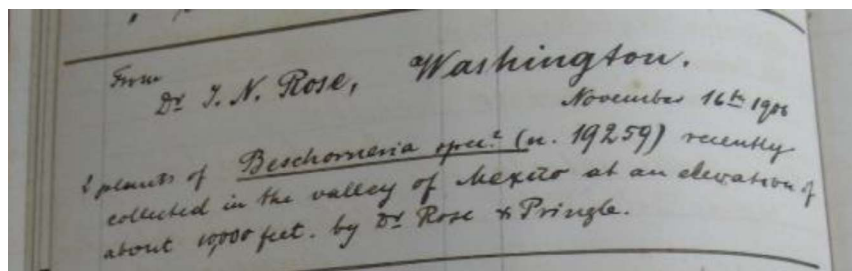 From
Dr J. N. Rose, Washington.
November 16th 1906
2 plants of Beschorneria spec.? (n. 19259) recently
collected in the valley of Mexico at an elevation of
about 10,000 feet. by Dr Rose & Pringle.